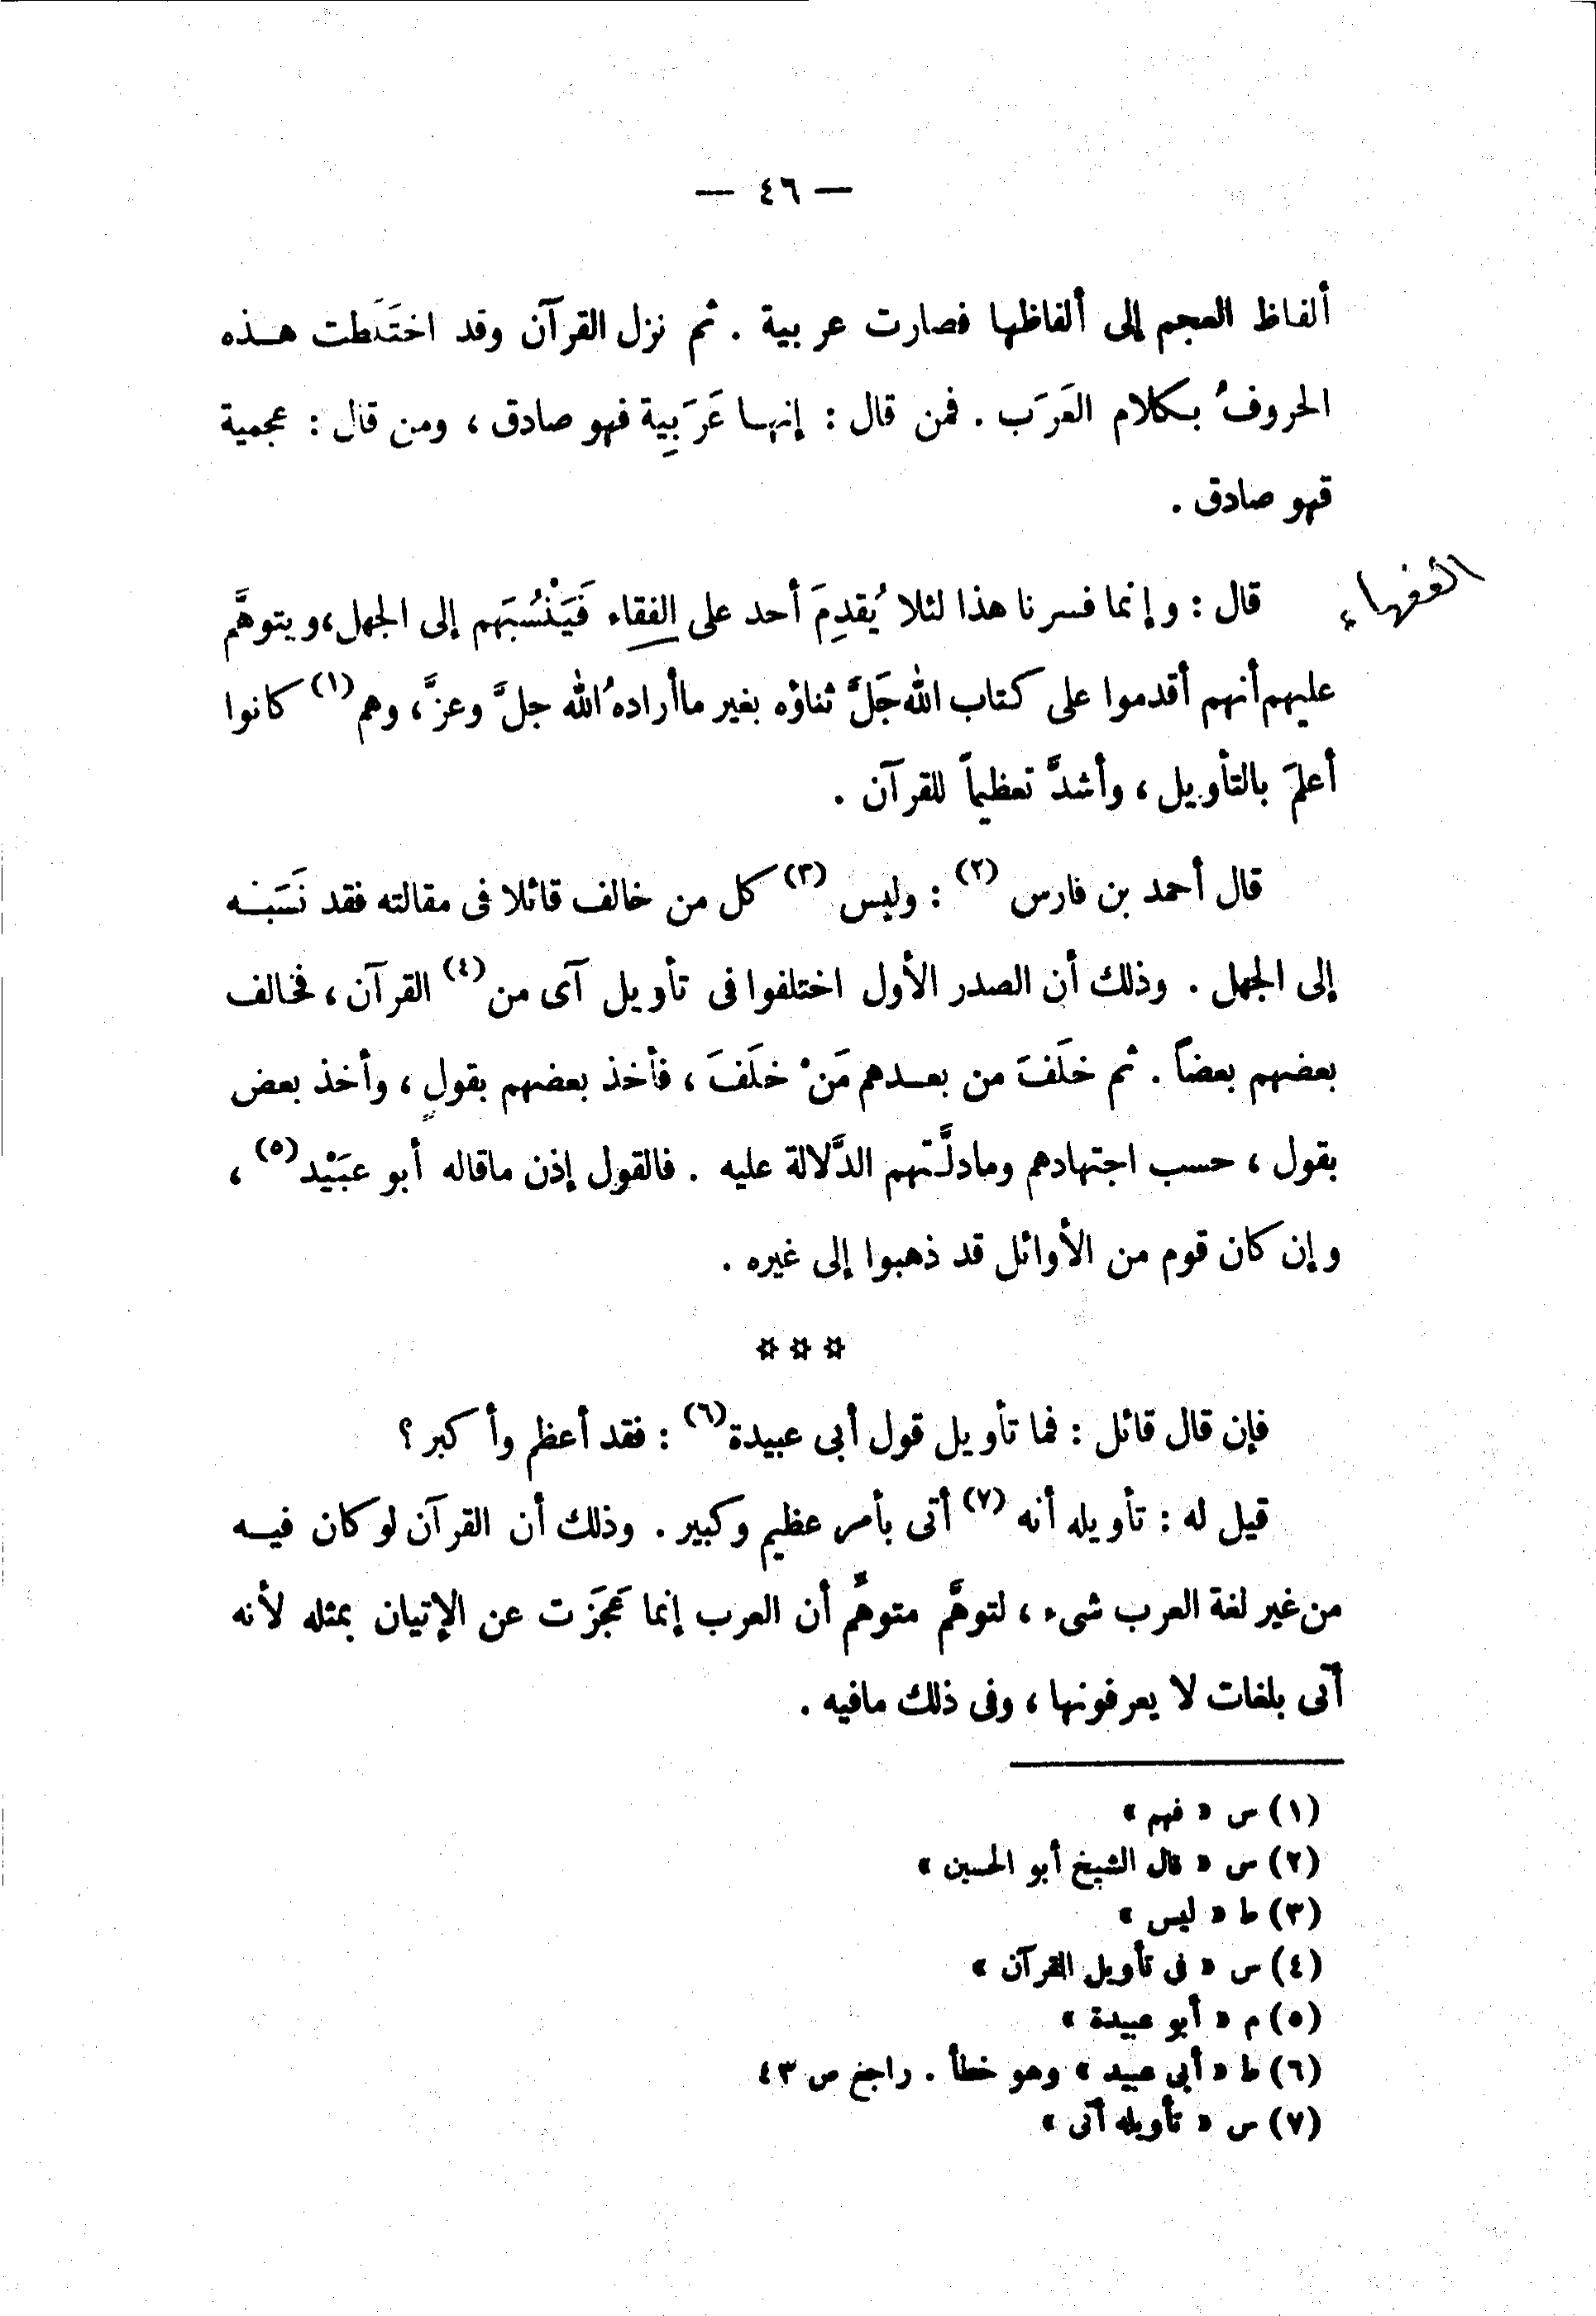 — ٤٦ —
ألفاظ العجم إلى ألفاظها فصارت عربية . ثم نزل القرآن وقد اختَلَطت هـذه
الحروفُ بكلام العَرَب . فمن قال : إنهـا عَرَبِية فهو صادق ، ومن قال : عجمية
فهو صادق .
قال : وإنما فسرنا هذا لئلا يُقدِمَ أحد على الفقاء فَيَنْسُبَهم إلى الجهل، ويتوهَّم
الفقهاء
عليهم أنهم أقدموا على كتاب الله جَلَّ ثناؤه بغير ماأراده ُالله جلَّ وعزَّ، وهم (١) كانوا
أعلمَ بالتأويل ، وأشدَّ تعظيماً للقرآن .
قال أحمد بن فارس (٢) : وليس (٣) كل من خالف قائلا فى مقالته فقد نَسَبَـه
إلى الجهل . وذلك أن الصدر الأول اختلفوا فى تأويل آى من (٤) القرآن ، فخالف
بعضهم بعضاً . ثم خلَفَ من بعـدهم مَنْ خلَفَ ، فأخذ بعضهم بقولٍ ، وأخذ بعض
بقول ، حسب اجتهادهم ومادلَّتهم الدَّلالة عليه . فالقول إذن ماقاله أبو عبَيْد (٥) ،
وإن كان قوم من الأوائل قد ذهبوا إلى غيره .
* * *
فإن قال قائل : فما تأويل قول أبى عبيدة (٦) : فقد أعظم وأكبر ؟
قيل له : تأويله أنه (٧) أتى بأمر عظيم وكبير . وذلك أن القرآن لو كان فيـه
من غير لغة العرب شىء ، لتوهَّم متوهِّم أن العرب إنما عَجَزَت عن الإتيان بمثله لأنه
أتى بلغات لا يعرفونها ، وفى ذلك مافيه .
(١) س « فهم »
(٢) س « قال الشيخ أبو الحسين »
(٣) ط « ليس »
(٤) س « فى تأويل القرآن »
(٥) م « أبو عبيدة »
(٦) ط « أبى عبيد » وهو خطأ . راجع ص ٤٣
(٧) س « تأويله أتى »